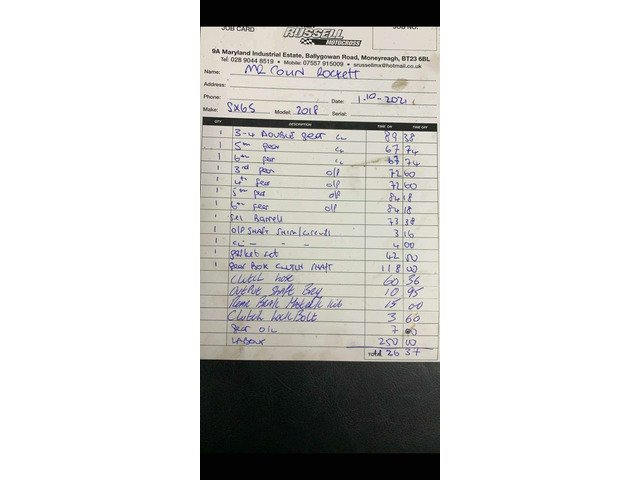 RUSSELL
JOB CARD MOTOCROSS JOB NO.
9A Maryland Industrial Estate, Ballygowan Road, Moneyreagh, BT23 6BL
Tel: 028 9044 8519 • Mobile: 07557 915009 • srussellmx@hotmail.co.uk
Name: MR Colin Rockett
Address:
Phone: Date: 1.10-2021
Make: SX65 Model: 2018 Serial:
QTY DESCRIPTION TIME ON TIME OFF
1 3-4 DOUBLE gear CL 89 38
1 5th gear CL 67 74
1 6th gear CL 67 74
1 3rd gear O/P 72 60
1 4th gear O/P 72 60
1 5th gear O/P 84 18
1 6th gear O/P 84 18
1 Barrell 73 38
1 O/P SHAFT SHIM/circlip 3 16
1 CL - - - 4 00
1 gasket set 42 00
1 gear BOX CLUTCH SHAFT 118 00
CLUTCH 60 36
OUTPUT SHAFT Brg 10 95
Rear Brake kit 15 00
Clutch Lock Bolt 3 60
gear OIL 7
LABOUR 250 00
Total 26 37